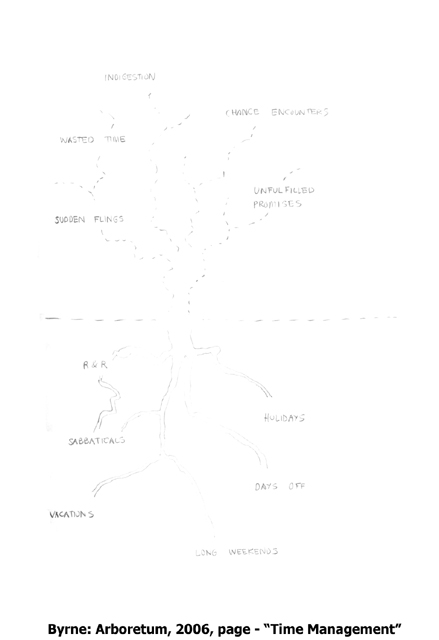 INDIGESTION
CHANCE ENCOUNTERS
WASTED TIME
UNFULFILLED
PROMISES
SUDDEN FLINGS
R & R
HOLIDAYS
SABBATICALS
DAYS OFF
VACATIONS
LONG WEEKENDS
Byrne: Arboretum, 2006, page - “Time Management”